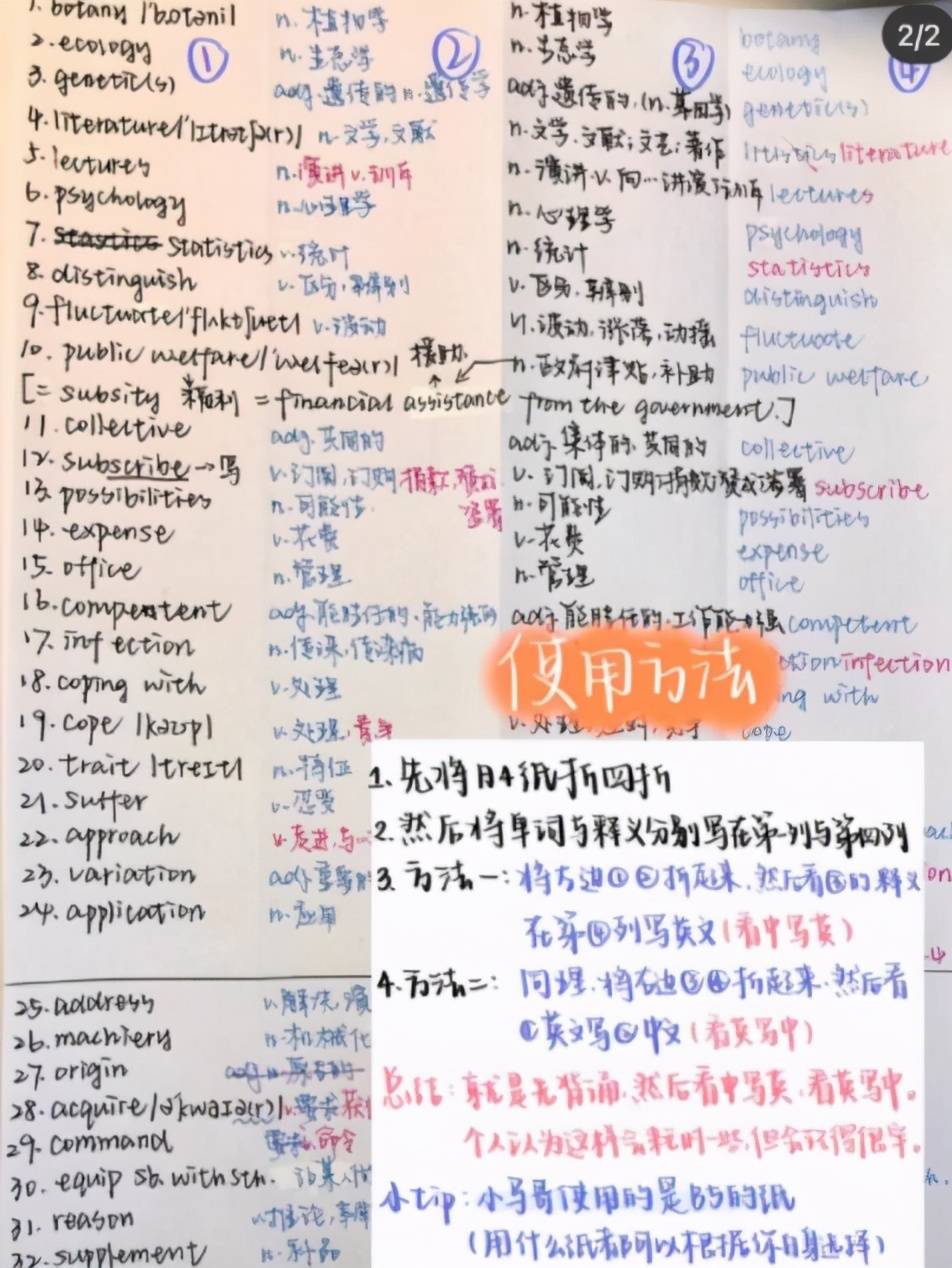 2/2
① ② ③ ④
1. botany /'botəni/ n. 植物学 n. 植物学 botany
2. ecology n. 生态学 n. 生态学 ecology
3. genetic(s) adj. 遗传的 n. 遗传学 adj. 遗传的, (n. 基因学) genetic(s)
4. literature /'lɪtrətʃə(r)/ n. 文学, 文献 n. 文学, 文献; 文艺; 著作 literature
5. lectures n. 演讲 v. 训斥 n. 演讲 v. 向…讲演 训斥 lectures
6. psychology n. 心理学 n. 心理学 psychology
7. statistics v. 统计 n. 统计 statistics
8. distinguish v. 区分, 辨别 v. 区分, 辨别 distinguish
9. fluctuate /'flʌktʃueɪt/ v. 波动 v. 波动, 涨落, 动摇 fluctuate
10. public welfare /'welfeə(r)/ 援助 n. 政府津贴, 补助 public welfare
[= subsity 福利 = financial assistance from the government.]
11. collective adj. 共同的 adj. 集体的, 共同的 collective
12. subscribe → 写 v. 订阅, 订购 捐款, 赞成 签署 v. 订阅, 订购; 捐款; 赞成; 签署 subscribe
13. possibilities n. 可能性 n. 可能性 possibilities
14. expense v. 花费 v. 花费 expense
15. office n. 管理 n. 管理 office
16. compentent adj. 能胜任的, 能力强的 adj. 能胜任的, 工作能力强 competent
17. infection n. 传染, 传染病 infection
18. coping with v. 处理 ng with
19. cope /kəʊp/ v. 处理, cope
20. trait /treɪt/ n. 特征
21. suffer v. 忍受
22. approach v. 走进, 与
23. variation
24. application n. 应用
25. address v. 解决, 演
26. machinery n. 机械化
27. origin
28. acquire /ə'kwaɪə(r)/ v. 要求 获得
29. command 要求, 命令
30. equip sb. with sth. 给某人
31. reason v. 推论, 辩
32. supplement n. 补品
使用方法
1. 先将A4纸折四折
2. 然后将单词与释义分别写在第一列与第四列
3. 方法一: 将右边①②折起来, 然后看③的释义
在第④列写英文 (看中写英)
4. 方法二: 同理, 将右边③④折起来, 然后看
①英文写②中文 (看英写中)
总结: 就是先背诵, 然后看中写英, 看英写中。
个人认为这样会耗时一些, 但会记得很牢。
小tip: 小马哥使用的是B5的纸
(用什么纸都可以根据你自身选择)